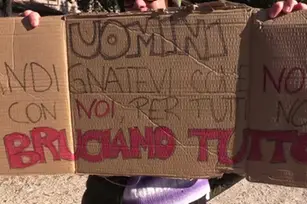 UOMINI
INDIGNATEVI COME NOI
CON NOI, PER TUTT
BRUCIAMO TUTTO